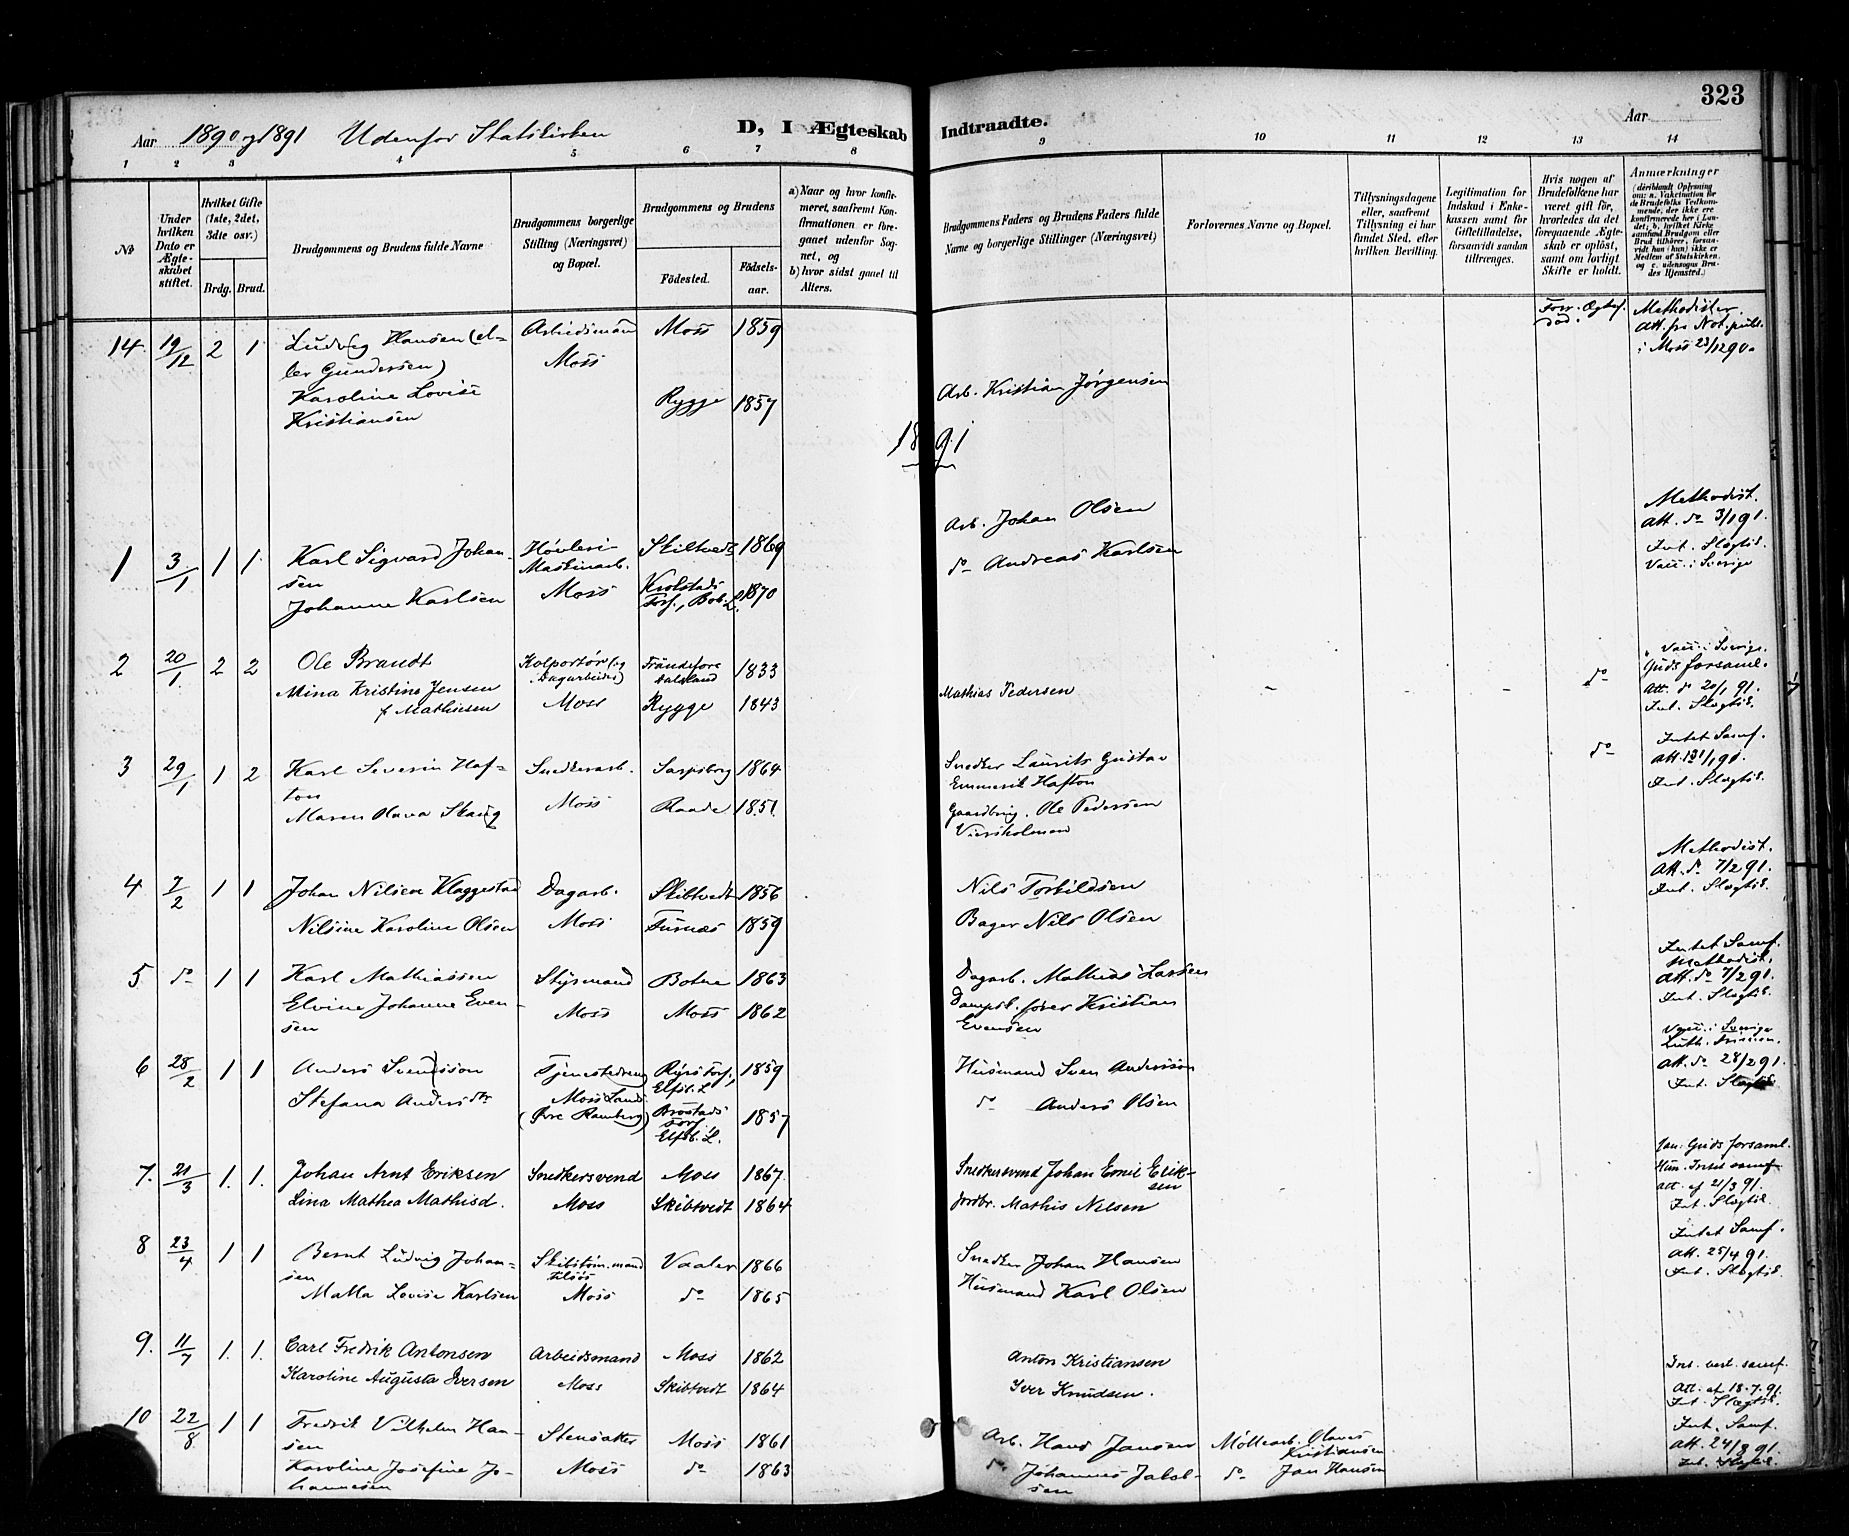 323
Aar 1890 og 1891 Udenfor Statskirken D, I Ægteskab Indtraadte. Aar
1 2 3 4 5 6 7 8 9 10 11 12 13 14
No
Under hvilken Dato er Ægteskabet stiftet.
Hvilket Gifte (1ste, 2det, 3die osv.)
Brdg. Brud.
Brudgommens og Brudens fulde Navne
Brudgommens borgerlige Stilling (Næringsvei) og Bopæl.
Brudgommens og Brudens
Födested.
Födselsaar.
a) Naar og hvor konfirmeret, saafremt Konfirmationen er foregaaet udenfor Sognet, og
b) hvor sidst gaaet til Alters.
Brudgommens Faders og Brudens Faders fulde Navne og borgerlige Stillinger (Næringsvei)
Forlovernes Navne og Bopæl.
Tillysningsdagene eller, saafremt Tillysning ei har fundet Sted, efter hvilken Bevilling.
Legitimation for Indskud i Enkekassen samt for Giftetilladelse, forsaavidt saadan tiltrænges.
Hvis nogen af Brudefolkene har været gift før, hvorledes da det foregaaende Ægteskab er oplöst, samt om lovligt Skifte er holdt.
Anmærkninger
14. 19/12 2 1 Ludvig Hansen (el-
ler Gundersen) Arbeidsmand Moss 1859
Moss
Karoline Lovise
Kristiansen Rygge 1857
Arb. Kristian Jørgensen
Forr. Ægtef. død.
Methodister.
Att. fra Not. publ.
i Moss 23/12 90.
1891
1 3/1 1 1 Karl Sigvard Johan-
sen Høvleri- Maskinarb. Skiltvedt 1869
Johanne Karlsen Moss 1870
Arb. Johan Olsen
do Andreas Karlsen
Methodist.
Att. do 3/1 91.
Int. Slægtsk.
Vacc. i Sverige
2 20/1 2 2 Ole Brandt Kolportør (og Dagarbeider) 1833
Mina Kristine Jensen
f. Mathisesen Moss Rygge 1843
Mathias Pedersen - - - do
Vacc. i Sverige.
Guds forsaml.
Att. do 20/1 91.
Int. Slægtsk.
3 29/1 1 2 Karl Severin Haf-
ton Snedkerarb. Sarpsborg 1864
Maren Olava Skaug Moss Raade 1851.
Snedker Laurits Gustav
Emmerik Hafton
Gaardbrug. Ole Pedersen
do
Intet Samf.
Int. Slægtsk.
4 7/2 1 1 Johan Nilsen Klaggestad Dagarb. Skibtvedt 1856
Nilsine Karoline Olsen Moss Tusnæs 1859
Nils Torkildsen
Bager Nils Olsen
Methodist.
Att. do 7/2 91.
Int. Slægtsk.
5 do 1 1 Karl Mathiassen Styrmand Botne 1863
Elvine Johanne Even-
sen Moss Moss 1862
Dagarb. Mathias Larsen
Dampsk. fører Kristian
Evensen
Intet Samf.
Methodist.
Att. do 7/2 91.
Int. Slægtsk.
6 28/2 1 1 Anders Svendsson Tjenestedreng 1859
Stefana Andersdtr Moss Land
(Øvre Ramberg) 1857
Husmand Sven Andersson
do Anders Olsen
Vacc. i Sverige
Att. do 28/2 91.
Int. Slægtsk.
7. 21/3 1. 1. Johan Arnt Eriksen Snedkersvend Moss 1867.
Lina Mathea Mathisd. Moss Skibtvedt 1864
Snedkersvend Johan Emil Erik-
sen
Jordbr. Mathis Nilsen
Han: Guds forsaml.
Hun: Intet samf.
att. af 21/3 91.
Int. Slægtsk.
8 23/4 1 1 Bernt Ludvig Johan-
sen Vaaler 1866
Malla Lovise Karlsen Moss do 1865
Snedker Johan Hansen
Husmand Karl Olsen
Intet Samf.
Att. 25/4 91.
Int. Slægtsk.
9. 11/7 1. 1. Carl Fredrik Antonsen Arbeidsmand Moss 1862
Karoline Augusta Iversen Moss Skibtvedt 1864
Anton Kristiansen
Iver Knudsen.
Int. best. samf.
Att. af 18.7.91.
Int. Slægtsk.
10 22/8 1 1 Fredrik Vilhelm Han-
sen Moss 1861
Karoline Josefine Jo-
hannesen Moss do 1863
Arb. Hans Jansen
do Johannes Jakob-
sen
Møllearb. Olaves
Kristiansen
do Jan Hansen
Int. Samf.
Att. 24/8 91.
Int. Slægtsk.